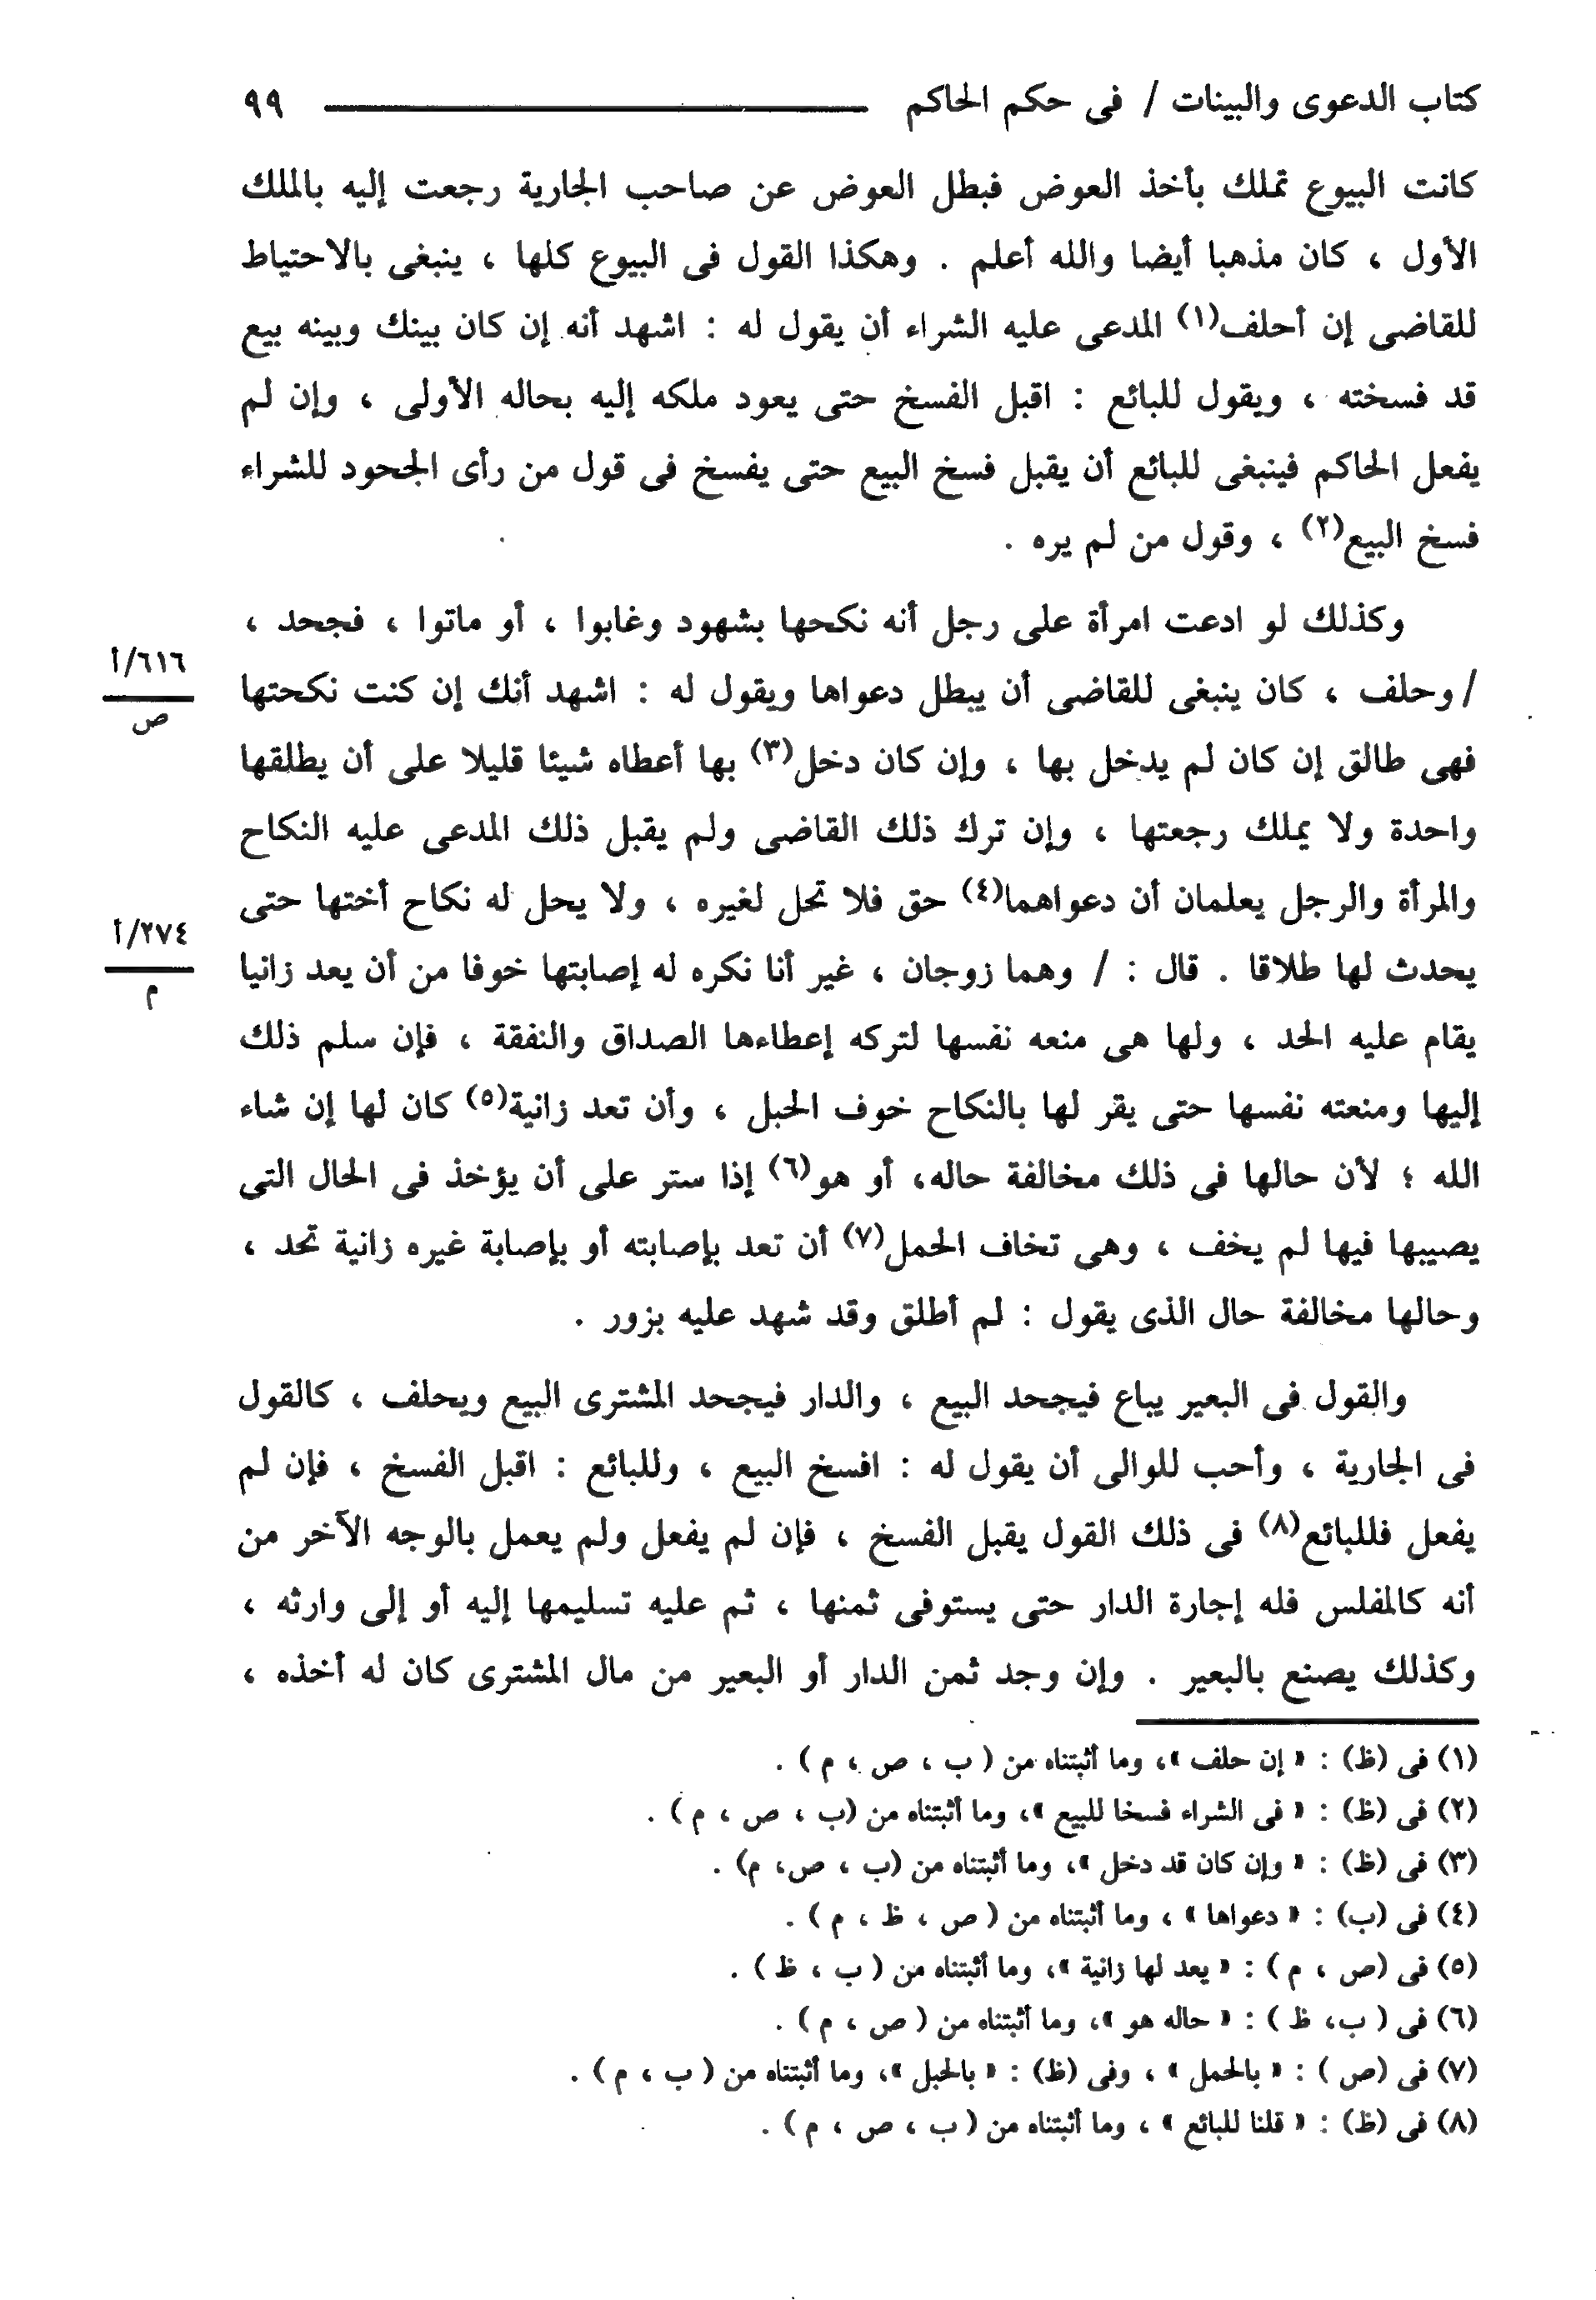 كتاب الدعوى والبينات / فى حكم الحاكم ٩٩
كانت البيوع تملك بأخذ العوض فبطل العوض عن صاحب الجارية رجعت إليه بالملك
الأول ، كان مذهبا أيضا والله أعلم . وهكذا القول فى البيوع كلها ، ينبغى بالاحتياط
للقاضى إن أحلف(١) المدعى عليه الشراء أن يقول له : اشهد أنه إن كان بينك وبينه بيع
قد فسخته ، ويقول للبائع : اقبل الفسخ حتى يعود ملكه إليه بحاله الأولى ، وإن لم
يفعل الحاكم فينبغى للبائع أن يقبل فسخ البيع حتى يفسخ فى قول من رأى الجحود للشراء
فسخ البيع(٢) ، وقول من لم يره .
وكذلك لو ادعت امرأة على رجل أنه نكحها بشهود وغابوا ، أو ماتوا ، فجحد ،
٦١٦/أ
ص
/ وحلف ، كان ينبغى للقاضى أن يبطل دعواها ويقول له : اشهد أنك إن كنت نكحتها
فهى طالق إن كان لم يدخل بها ، وإن كان دخل(٣) بها أعطاه شيئا قليلا على أن يطلقها
واحدة ولا يملك رجعتها ، وإن ترك ذلك القاضى ولم يقبل ذلك المدعى عليه النكاح
والمرأة والرجل يعلمان أن دعواهما(٤) حق فلا تحل لغيره ، ولا يحل له نكاح أختها حتى
٢٧٤/أ
م
يحدث لها طلاقا . قال : / وهما زوجان ، غير أنا نكره له إصابتها خوفا من أن يعد زانيا
يقام عليه الحد ، ولها هى منعه نفسها لتركه إعطاءها الصداق والنفقة ، فإن سلم ذلك
إليها ومنعته نفسها حتى يقر لها بالنكاح خوف الحبل ، وأن تعد زانية(٥) كان لها إن شاء
الله ؛ لأن حالها فى ذلك مخالفة حاله، أو هو(٦) إذا ستر على أن يؤخذ فى الحال التى
يصيبها فيها لم يخف ، وهى تخاف الحمل(٧) أن تعد بإصابته أو بإصابة غيره زانية تحد ،
وحالها مخالفة حال الذى يقول : لم أطلق وقد شهد عليه بزور .
والقول فى البعير يباع فيجحد البيع ، والدار فيجحد المشترى البيع ويحلف ، كالقول
فى الجارية ، وأحب للوالى أن يقول له : افسخ البيع ، وللبائع : اقبل الفسخ ، فإن لم
يفعل فللبائع(٨) فى ذلك القول يقبل الفسخ ، فإن لم يفعل ولم يعمل بالوجه الآخر من
أنه كالمفلس فله إجارة الدار حتى يستوفى ثمنها ، ثم عليه تسليمها إليه أو إلى وارثه ،
وكذلك يصنع بالبعير . وإن وجد ثمن الدار أو البعير من مال المشترى كان له أخذه ،
(١) فى (ظ) : « إن حلف »، وما أثبتناه من ( ب ، ص ، م ) .
(٢) فى (ظ) : « فى الشراء فسخا للبيع »، وما أثبتناه من (ب ، ص ، م ) .
(٣) فى (ظ) : « وإن كان قد دخل »، وما أثبتناه من (ب ، ص، م) .
(٤) فى (ب) : « دعواها » ، وما أثبتناه من ( ص ، ظ ، م ) .
(٥) فى (ص ، م ) : « يعد لها زانية »، وما أثبتناه من ( ب ، ظ ) .
(٦) فى ( ب، ظ ) : « حاله هو »، وما أثبتناه من ( ص ، م ) .
(٧) فى (ص ) : « بالحمل » ، وفى (ظ) : « بالحبل »، وما أثبتناه من ( ب ، م ) .
(٨) فى (ظ) : « قلنا للبائع » ، وما أثبتناه من ( ب ، ص ، م ) .